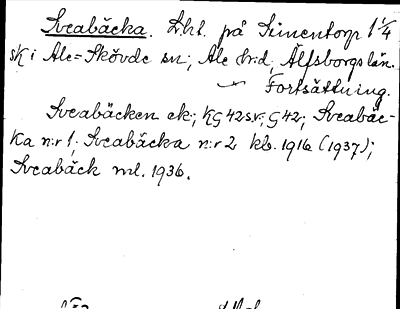 Sveabäcka. Lht. på Simentorp 1 1/4
sk i Ale=Skövde sn; Ale hd, Älfsborgs län.
Fortsättning.
Sveabäcken ek; KG 42 sv; G 42; Sveabäc-
ka n:r 1; Sveabäcka n:r 2 kb. 1916 (1937);
Sveabäck ml. 1936.